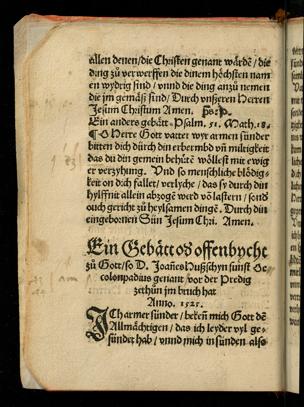 allen denen/die Christen genant wärdē/die
ding zů verwerffen die dinem höchsten nam
en wydrig sind/vnnd die ding anzů nemen
die jm gemäß sind/Durch vnßeren Herren
Jesum Christum Amen.
Ein anders gebätt. Psalm. 51. Math. 18.
¶ O Herre Gott vatter wyr armen sünder
bitten dich durch din erbermbd vn̄ miltigkeit
das du din gemein behütē wöllest mit ewig
er verzyhung. Vnd so menschliche blödig-
keit on dich fallet/verlyche/das sy durch din
hylffnit allein abzogē werd vō lastern/sond
ouch gericht zů heylsamen dingē. Durch din
eingebornen Sūn Jesum Chri. Amen.
Ein Gebätt oð offenbycht
zů Gott/so D. Joānes Hußschyn sunst Oe
colompadius genant/vor der Predig
zethūn jm bruch hat
Anno. 1525.
Ich armer sünder/bekeñ mich Gott dē
Allmächtigen/das ich leyder vyl ge-
sünder hab/vnnd mich in sünden also